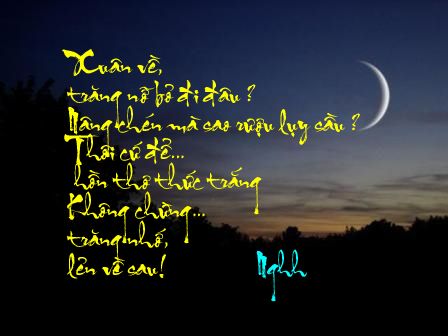 Xuân về,
trăng nỡ bỏ đi đâu ?
Nâng chén mà sao rượu lụy sầu ?
Thôi cứ để...
hồn thơ thức trắng
Không chừng...
trăng nhớ,
lẻn về sau!
Nghh